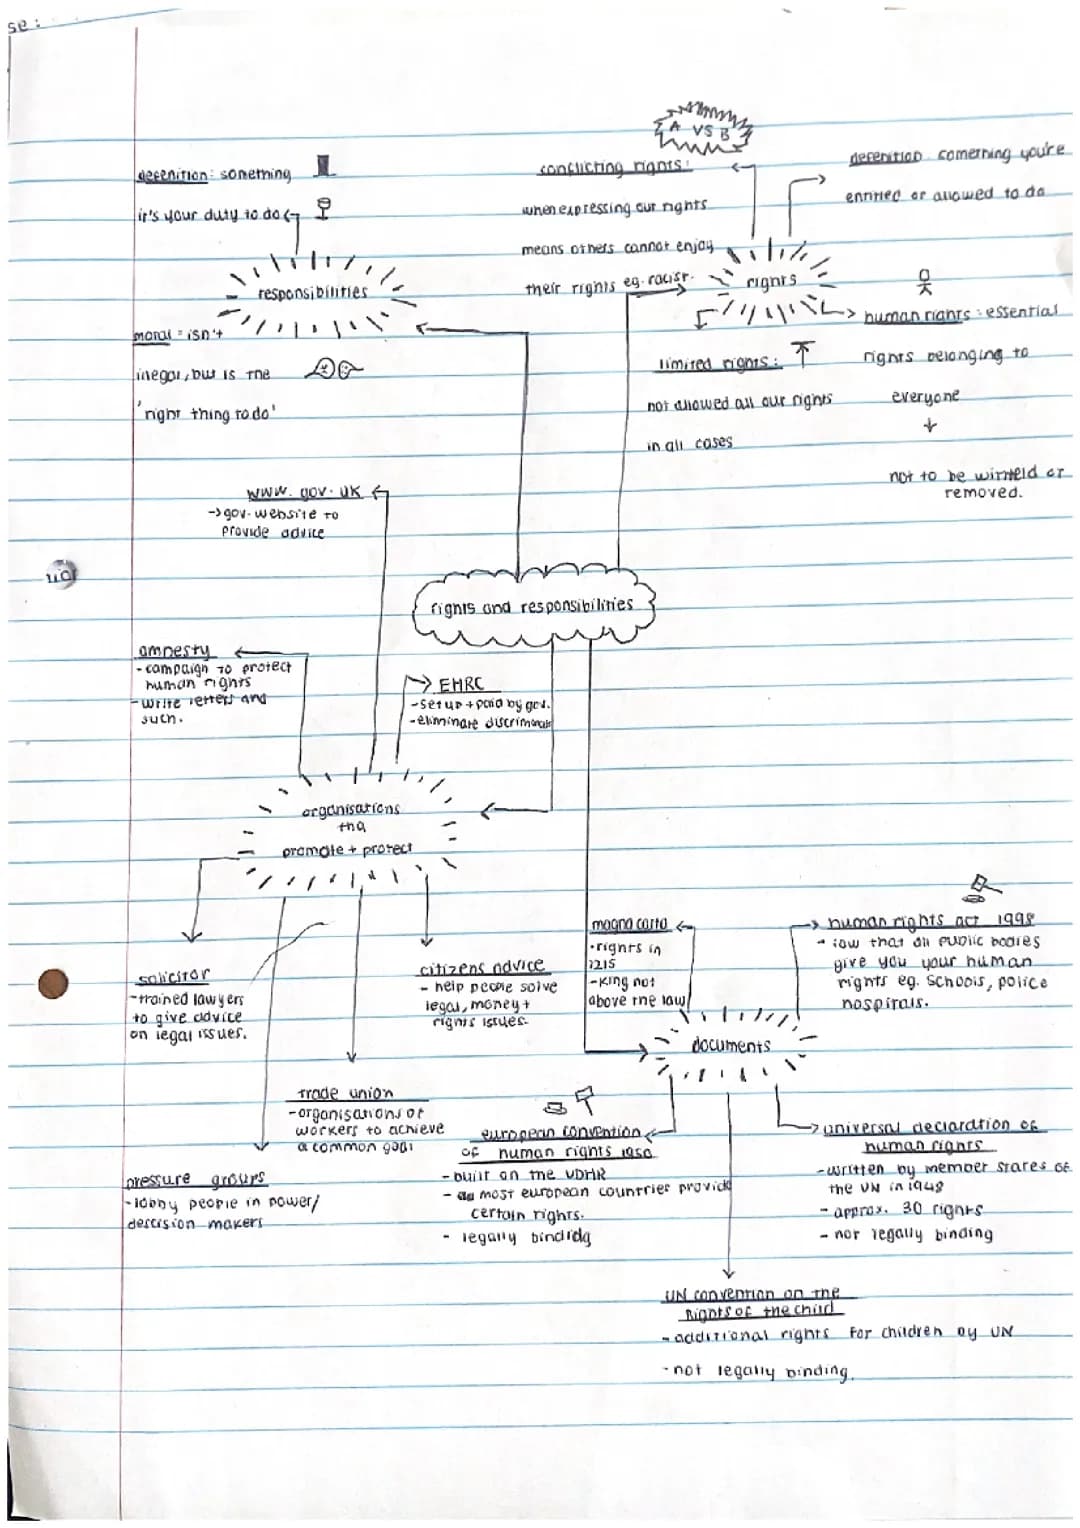 se:
A VS B
conflicting rights:
when expressing our rights
means others cannot enjoy
their rights eg. racist.
defenition: something you're
entitled or allowed to do
defenition: something
it's your duty to do
responsibilities
rights
moral = isn't
illegal, but is the
'right thing to do'
human rights: essential
rights belonging to
everyone
not to be witheld or
removed.
limited rights:
not allowed all our rights
in all cases
www.gov.uk
→ gov. website to
provide advice
rights and responsibilities
amnesty
- campaign to protect
human rights
- write letters and
such.
EHRC
- set up + paid by gov.
- eliminate discriminati
organisations
tha
promote + protect
solicitor
- trained lawyers
to give advice
on legal issues.
citizens advice
- help people solve
legal, money +
rights issues.
trade union
- organisations of
workers to achieve
a common goal
pressure groups
- lobby people in power/
descision makers
magna carta
- rights in
1215
- King not
above the law
human rights act 1998
- law that all public bodies
give you your human
rights eg. schools, police
hospitals.
documents
european convention
of human rights 1950
- built on the UDHR
- most european countries provide
certain rights.
- legally bindidg
universal declaration of
human rights
- written by member states of
the UN in 1948
- approx. 30 rights
- not legally binding
UN convention on the
Rights of the child
- additional rights for children by UN
- not legally binding.